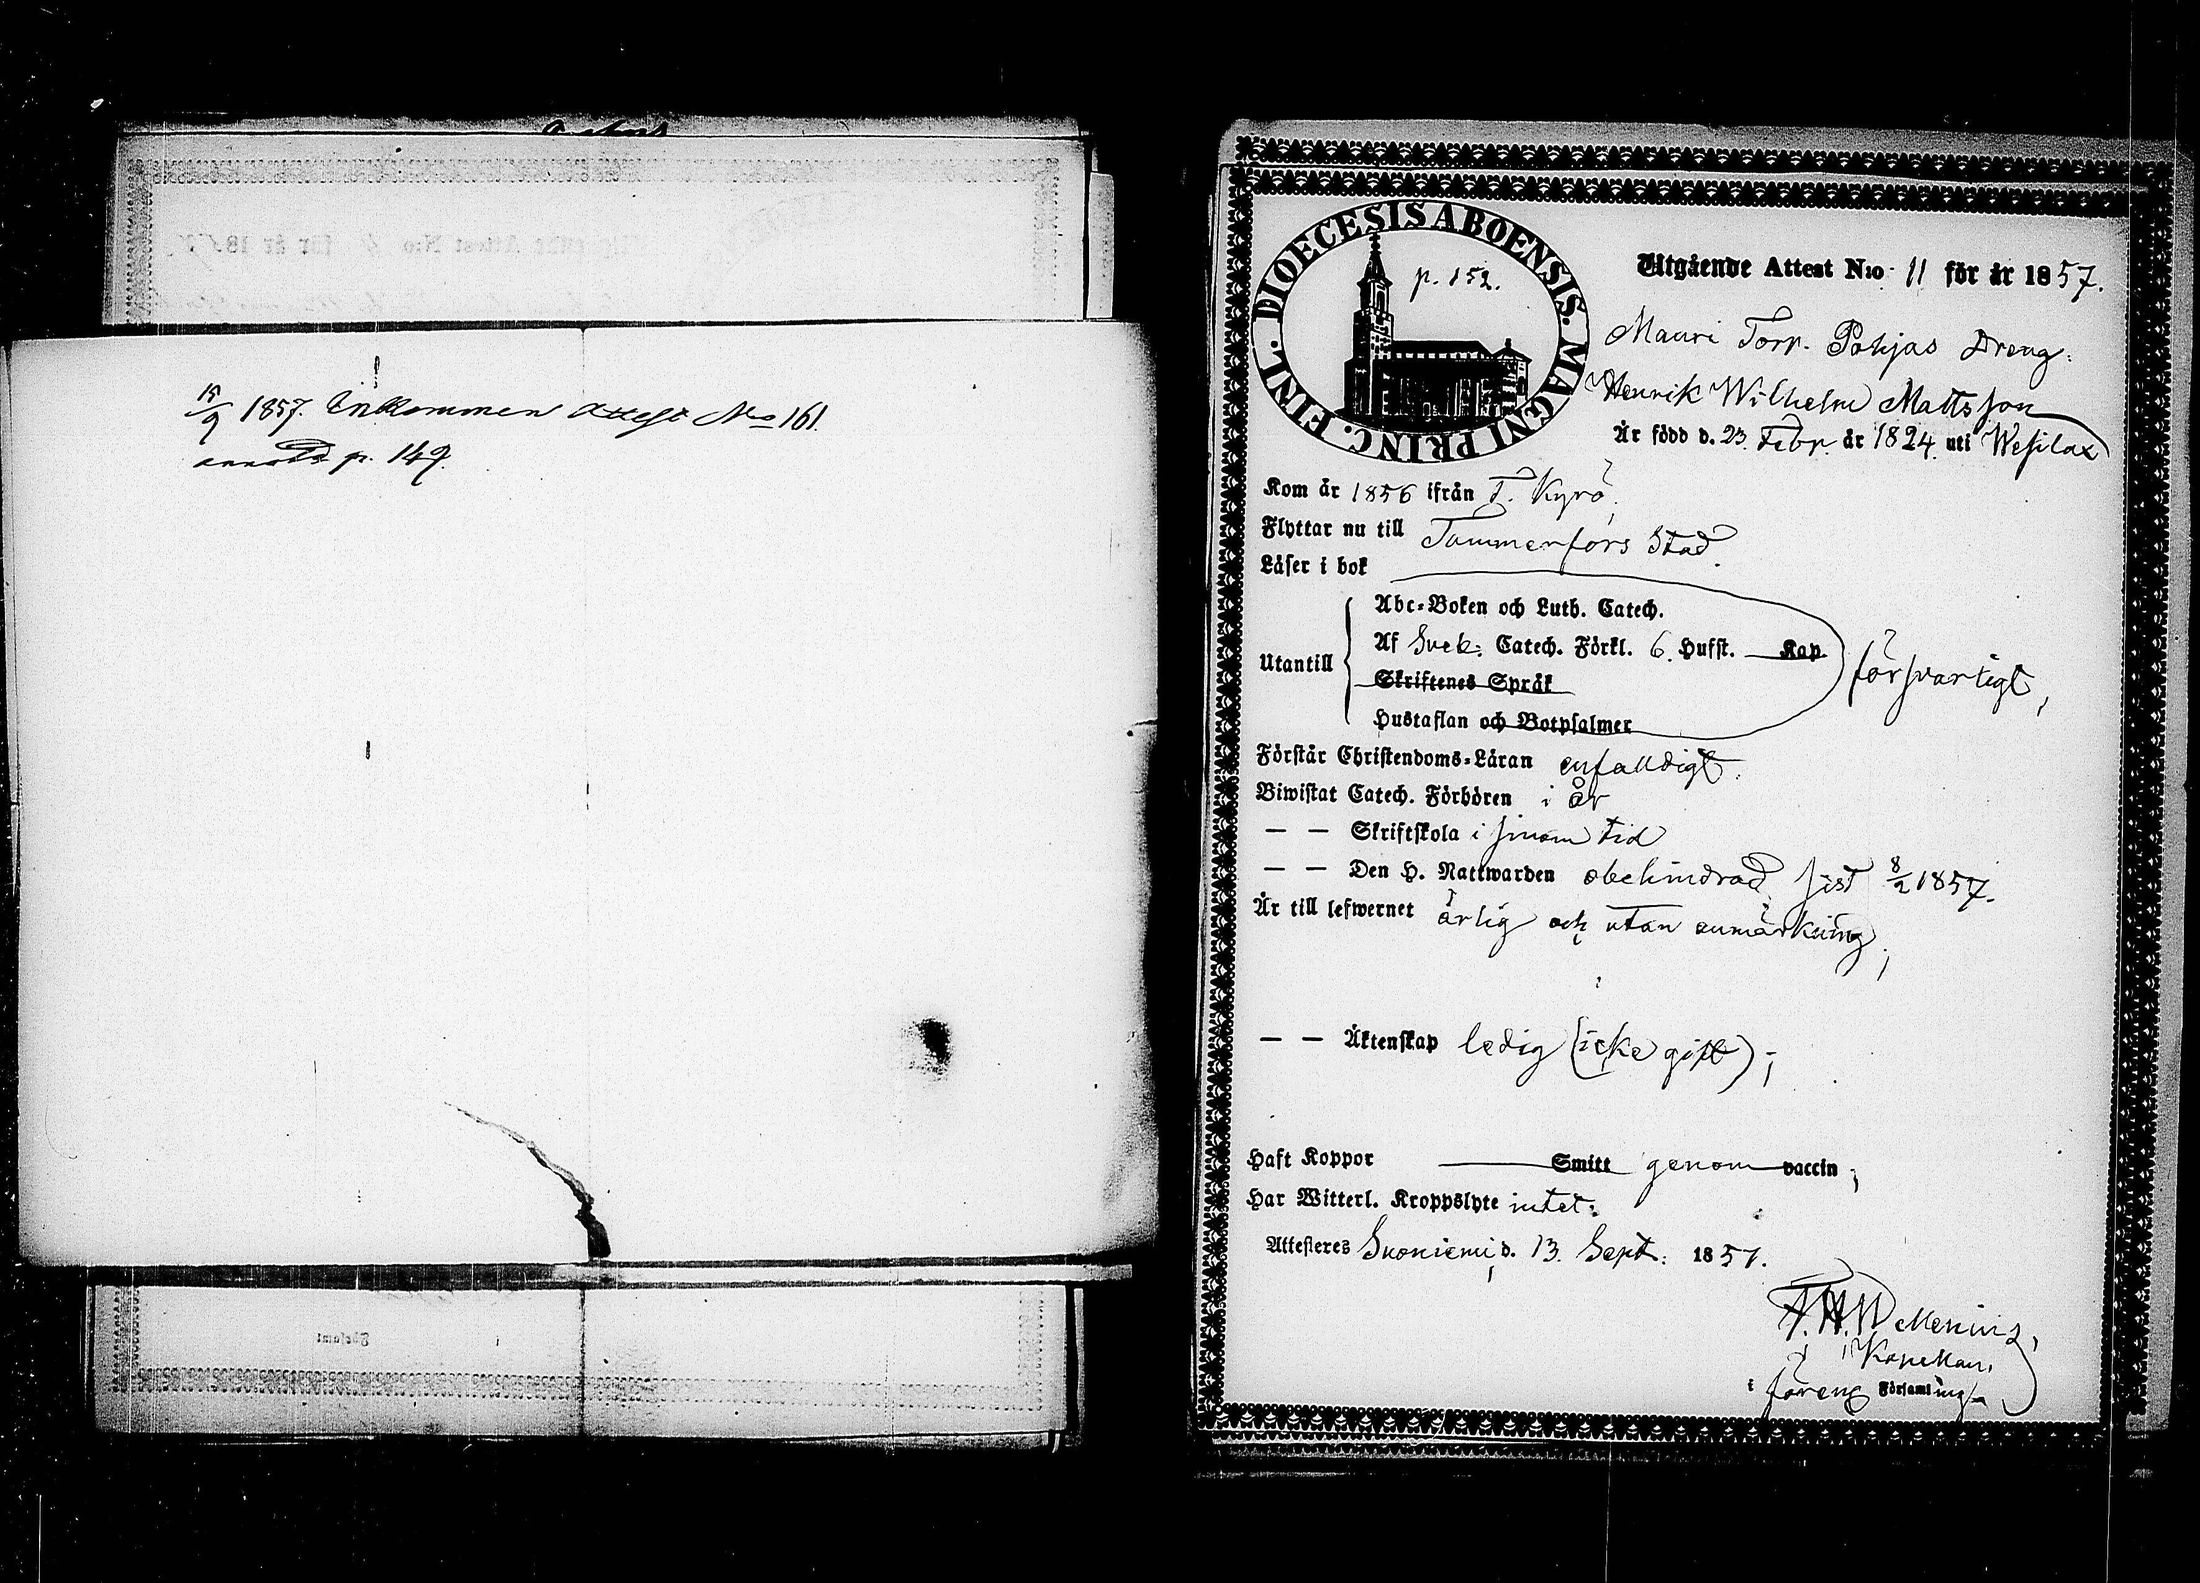 15/9 1857. Inkommen attest No 161.
annot. p. 149.
DIOECESIS ABOENSIS. MAGNI PRINC. FINL.
p. 152.
Utgående Attest N:o 11 för år 1857.
Mauri Torp. Pohjas Dreng:
Henrik Wilhelm Mattsson
Är född d. 23. Febr. år 1824. uti Wesilax
Kom år 1856 ifrån T. Kyrö,
Flyttar nu till Tammerfors Stad.
Läser i bok
Abc-Boken och Luth. Catech.
Utantill
Af Sveb: Catech. Förkl. 6. Hufst. Kap
Skriftenes Språk
Hustaflan och Botpsalmer
försvarligt,
Förstår Christendoms-Läran enfaldigt.
Biwistat Catech. Förhören i år
— — Skriftskola i sinom tid
— — Den H. Nattwarden obehindrad sist 8/2 1857.
Är till lefwernet ärlig och utan anmärkning,
— — Äktenskap ledig (icke gift);
Haft Koppor Smitt genom vaccin;
Har Witterl. Kroppslyte intet:
Attesteres Suoniemi, d. 13. Sept. 1857.
Kapellan,
i Församling